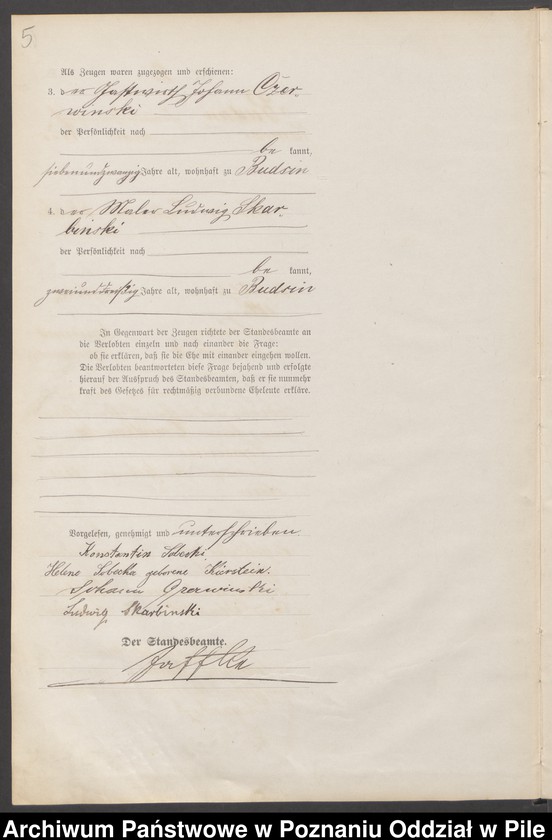 5
Als Zeugen waren zugezogen und erschienen:
3. der Gastwirth Johann Czer-
winski
der Persönlichkeit nach
be kannt,
siebenundzwanzig Jahre alt, wohnhaft zu Budsin
4. der Maler Ludwig Skar-
binski
der Persönlichkeit nach
be kannt,
zweiunddreißig Jahre alt, wohnhaft zu Budsin
In Gegenwart der Zeugen richtete der Standesbeamte an
die Verlobten einzeln und nach einander die Frage:
ob sie erklären, daß sie die Ehe mit einander eingehen wollen.
Die Verlobten beantworteten diese Frage bejahend und erfolgte
hierauf der Ausspruch des Standesbeamten, daß er sie nunmehr
kraft des Gesetzes für rechtmäßig verbundene Eheleute erkläre.
Vorgelesen, genehmigt und unterschrieben.
Konstantin Sobecki.
Helene Sobecka geborene Kierstein.
Johann Czerwinski
Ludwig Skarbinski
Der Standesbeamte.
Archiwum Państwowe w Poznaniu Oddział w Pile